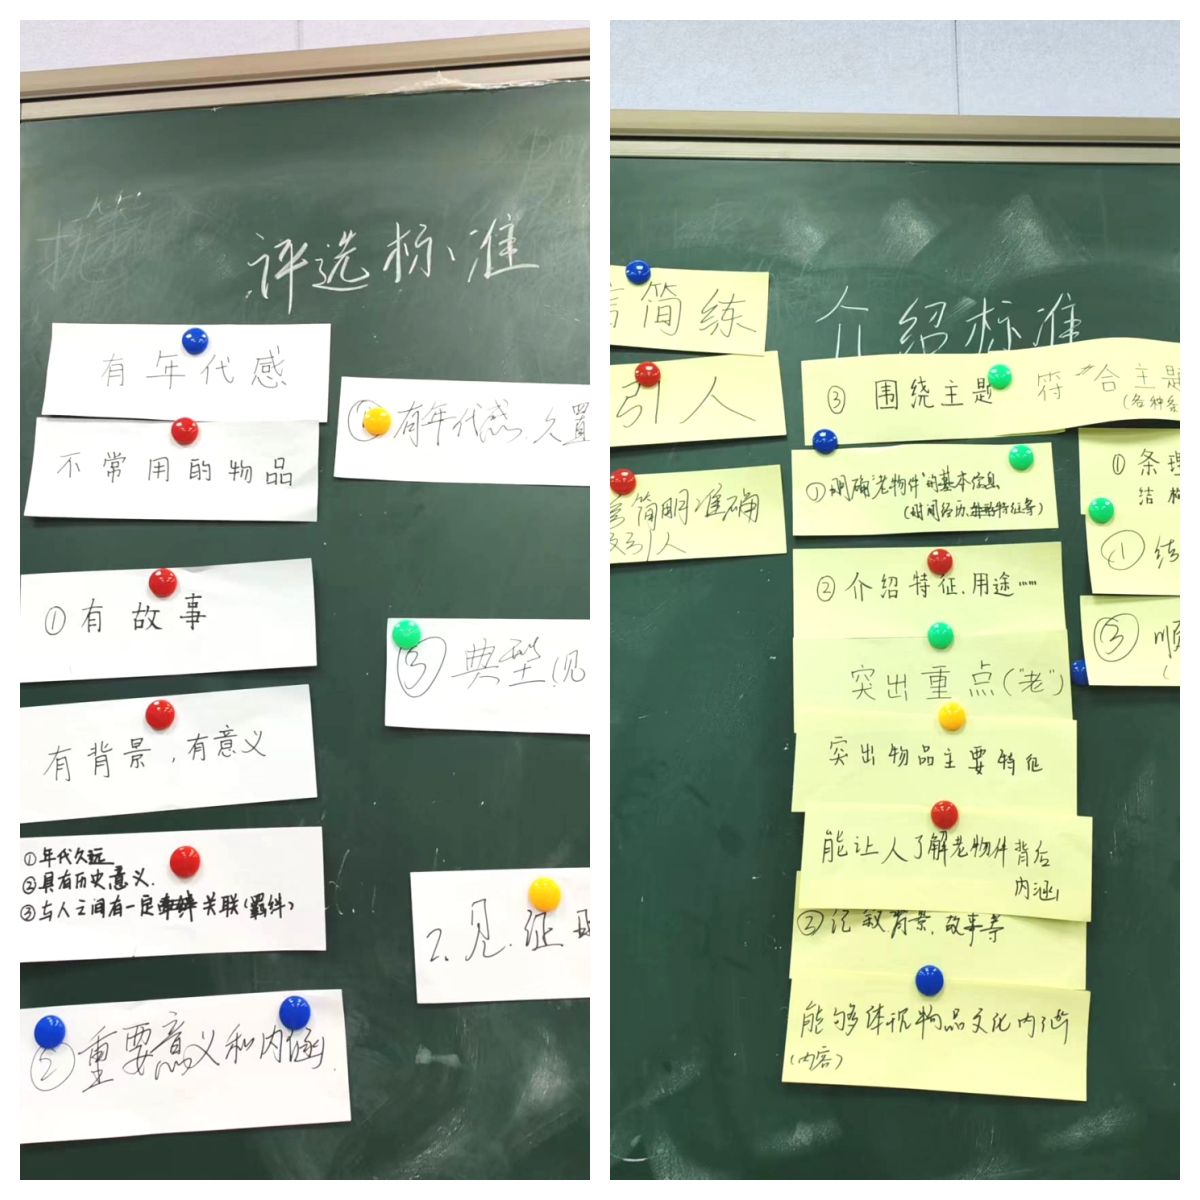 评选标准
有年代感
不常用的物品
①有故事
有背景，有意义
①年代久远
②具有历史意义.
③与人之间有一定关联(羁绊)
②重要意义和内涵.
有年代感、久置
③典型(见
2、见证
介绍标准
言简练
引人
言简明准确
及引人
③ 围绕主题 符合主题
①明确"老物件"的基本信息
(时间经历、特征等)
②介绍特征、用途……
突出重点("老")
突出物品主要特征
能让人了解老物件背后
内涵
③记叙背景、故事等
能够体现物品文化内涵
(内容)
①条理
结构
①
③顺